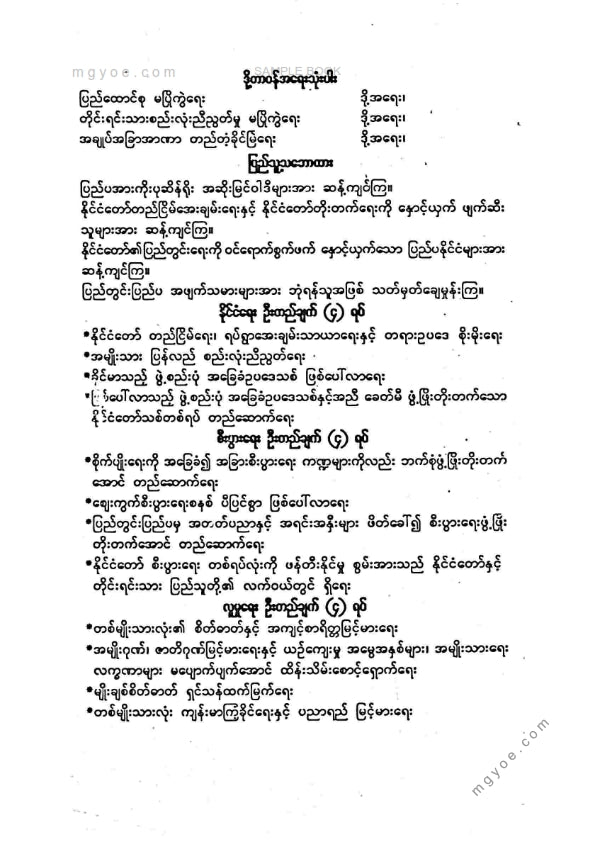 mgyoe.com SAMPLE BOOK
ဒို့တာဝန်အရေးသုံးပါး
ပြည်ထောင်စု မပြိုကွဲရေး ဒို့အရေး၊
တိုင်းရင်းသားစည်းလုံးညီညွတ်မှု မပြိုကွဲရေး ဒို့အရေး၊
အချုပ်အခြာအာဏာ တည်တံ့ခိုင်မြဲရေး ဒို့အရေး၊
ပြည်သူ့သဘောထား
ပြည်ပအားကိုးပုဆိန်ရိုး အဆိုးမြင်ဝါဒီများအား ဆန့်ကျင်ကြ။
နိုင်ငံတော်တည်ငြိမ်အေးချမ်းရေးနှင့် နိုင်ငံတော်တိုးတက်ရေးကို နှောင့်ယှက် ဖျက်ဆီး
သူများအား ဆန့်ကျင်ကြ။
နိုင်ငံတော်၏ပြည်တွင်းရေးကို ဝင်ရောက်စွက်ဖက် နှောင့်ယှက်သော ပြည်ပနိုင်ငံများအား
ဆန့်ကျင်ကြ။
ပြည်တွင်းပြည်ပ အဖျက်သမားများအား ဘုံရန်သူအဖြစ် သတ်မှတ်ချေမှုန်းကြ။
နိုင်ငံရေး ဦးတည်ချက် (၄) ရပ်
*နိုင်ငံတော် တည်ငြိမ်ရေး၊ ရပ်ရွာအေးချမ်းသာယာရေးနှင့် တရားဥပဒေ စိုးမိုးရေး
*အမျိုးသား ပြန်လည် စည်းလုံးညီညွတ်ရေး
*ခိုင်မာသည့် ဖွဲ့စည်းပုံ အခြေခံဥပဒေသစ် ဖြစ်ပေါ်လာရေး
*ဖြစ်ပေါ်လာသည့် ဖွဲ့စည်းပုံ အခြေခံဥပဒေသစ်နှင့်အညီ ခေတ်မီ ဖွံ့ဖြိုးတိုးတက်သော
နိုင်ငံတော်သစ်တစ်ရပ် တည်ဆောက်ရေး
စီးပွားရေး ဦးတည်ချက် (၄) ရပ်
*စိုက်ပျိုးရေးကို အခြေခံ၍ အခြားစီးပွားရေး ကဏ္ဍများကိုလည်း ဘက်စုံဖွံ့ဖြိုးတိုးတက်
အောင် တည်ဆောက်ရေး
*ဈေးကွက်စီးပွားရေးစနစ် ပီပြင်စွာ ဖြစ်ပေါ်လာရေး
*ပြည်တွင်းပြည်ပမှ အတတ်ပညာနှင့် အရင်းအနှီးများ ဖိတ်ခေါ်၍ စီးပွားရေးဖွံ့ဖြိုး
တိုးတက်အောင် တည်ဆောက်ရေး
*နိုင်ငံတော် စီးပွားရေး တစ်ရပ်လုံးကို ဖန်တီးနိုင်မှု စွမ်းအားသည် နိုင်ငံတော်နှင့်
တိုင်းရင်းသား ပြည်သူတို့၏ လက်ဝယ်တွင် ရှိရေး
လူမှုရေး ဦးတည်ချက် (၄) ရပ်
*တစ်မျိုးသားလုံး၏ စိတ်ဓာတ်နှင့် အကျင့်စာရိတ္တမြင့်မားရေး
*အမျိုးဂုဏ်၊ ဇာတိဂုဏ်မြင့်မားရေးနှင့် ယဉ်ကျေးမှု အမွေအနှစ်များ၊ အမျိုးသားရေး
လက္ခဏာများ မပျောက်ပျက်အောင် ထိန်းသိမ်းစောင့်ရှောက်ရေး
*မျိုးချစ်စိတ်ဓာတ် ရှင်သန်ထက်မြက်ရေး
*တစ်မျိုးသားလုံး ကျန်းမာကြံ့ခိုင်ရေးနှင့် ပညာရည် မြင့်မားရေး
mgyoe.com